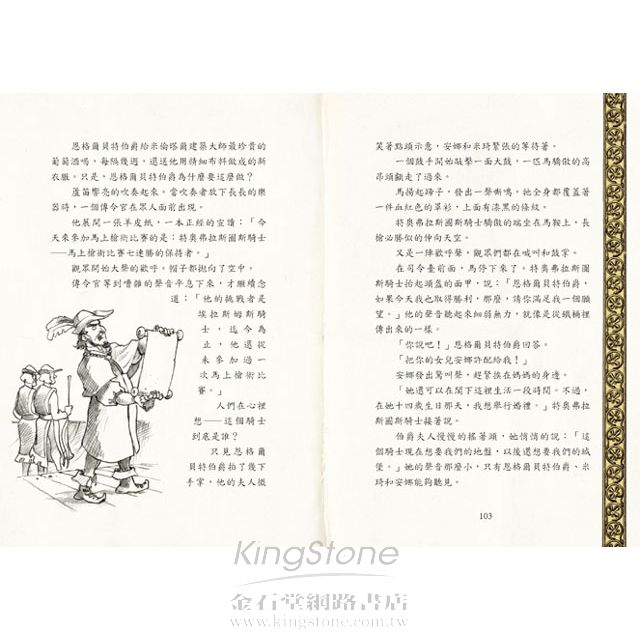 恩格爾貝特伯爵給米倫塔爾建築大師最珍貴的
葡萄酒喝，每隔幾週，還送他用精細布料做成的新
衣服。只是，恩格爾貝特伯爵為什麼要這麼做？
蘆笛響亮的吹奏起來。當吹奏者放下長長的樂
器時，一個傳令官在眾人面前出現。
他展開一張羊皮紙，一本正經的宣讀：「今
天來參加馬上槍術比賽的是：特奧弗拉斯圖斯騎士
——馬上槍術比賽七連勝的保持者。」
觀眾開始大聲的歡呼。帽子都拋向了空中。
傳令官等到嘈雜的聲音平息下來，才繼續唸
道：「他的挑戰者是
埃拉斯姆斯騎
士，迄今為
止，他還從
未參加過一
次馬上槍術比
賽。」
人們在心裡
想——這個騎士
到底是誰？
只見恩格爾
貝特伯爵拍了幾下
手掌，他的夫人微
笑著點頭示意，安娜和米琦緊張的等待著。
一個鼓手開始敲擊一面大鼓，一匹馬驕傲的高
昂頭顱走了過來。
馬揚起蹄子，發出一聲嘶鳴，牠全身都覆蓋著
一件血紅色的罩衫，上面有漆黑的條紋。
特奧弗拉斯圖斯騎士驕傲的端坐在馬鞍上，長
槍必勝似的伸向天空。
又是一陣歡呼聲，觀眾們都在喊叫和鼓掌。
在司令臺前面，馬停下來了。特奧弗拉斯圖
斯騎士抬起頭盔的面甲，說：「恩格爾貝特伯爵，
如果今天我也取得勝利，那麼，請你滿足我一個願
望。」他的聲音聽起來細弱無力，就像是從鐵桶裡
傳出來的一樣。
「你說吧！」恩格爾貝特伯爵回答。
「把你的女兒安娜許配給我！」
安娜發出驚叫聲，趕緊挨在媽媽的身邊。
「她還可以在閣下這裡生活一段時間。不過，
在她十四歲生日那天，我想舉行婚禮。」特奧弗拉
斯圖斯騎士接著說。
伯爵夫人慢慢的搖著頭，她悄悄的說：「這
個騎士現在想要我們的地盤，以後還想要我們的城
堡。」她的聲音那麼小，只有恩格爾貝特伯爵、米
琦和安娜能夠聽見。
103
KingStone
金石堂網路書店
www.kingstone.com.tw